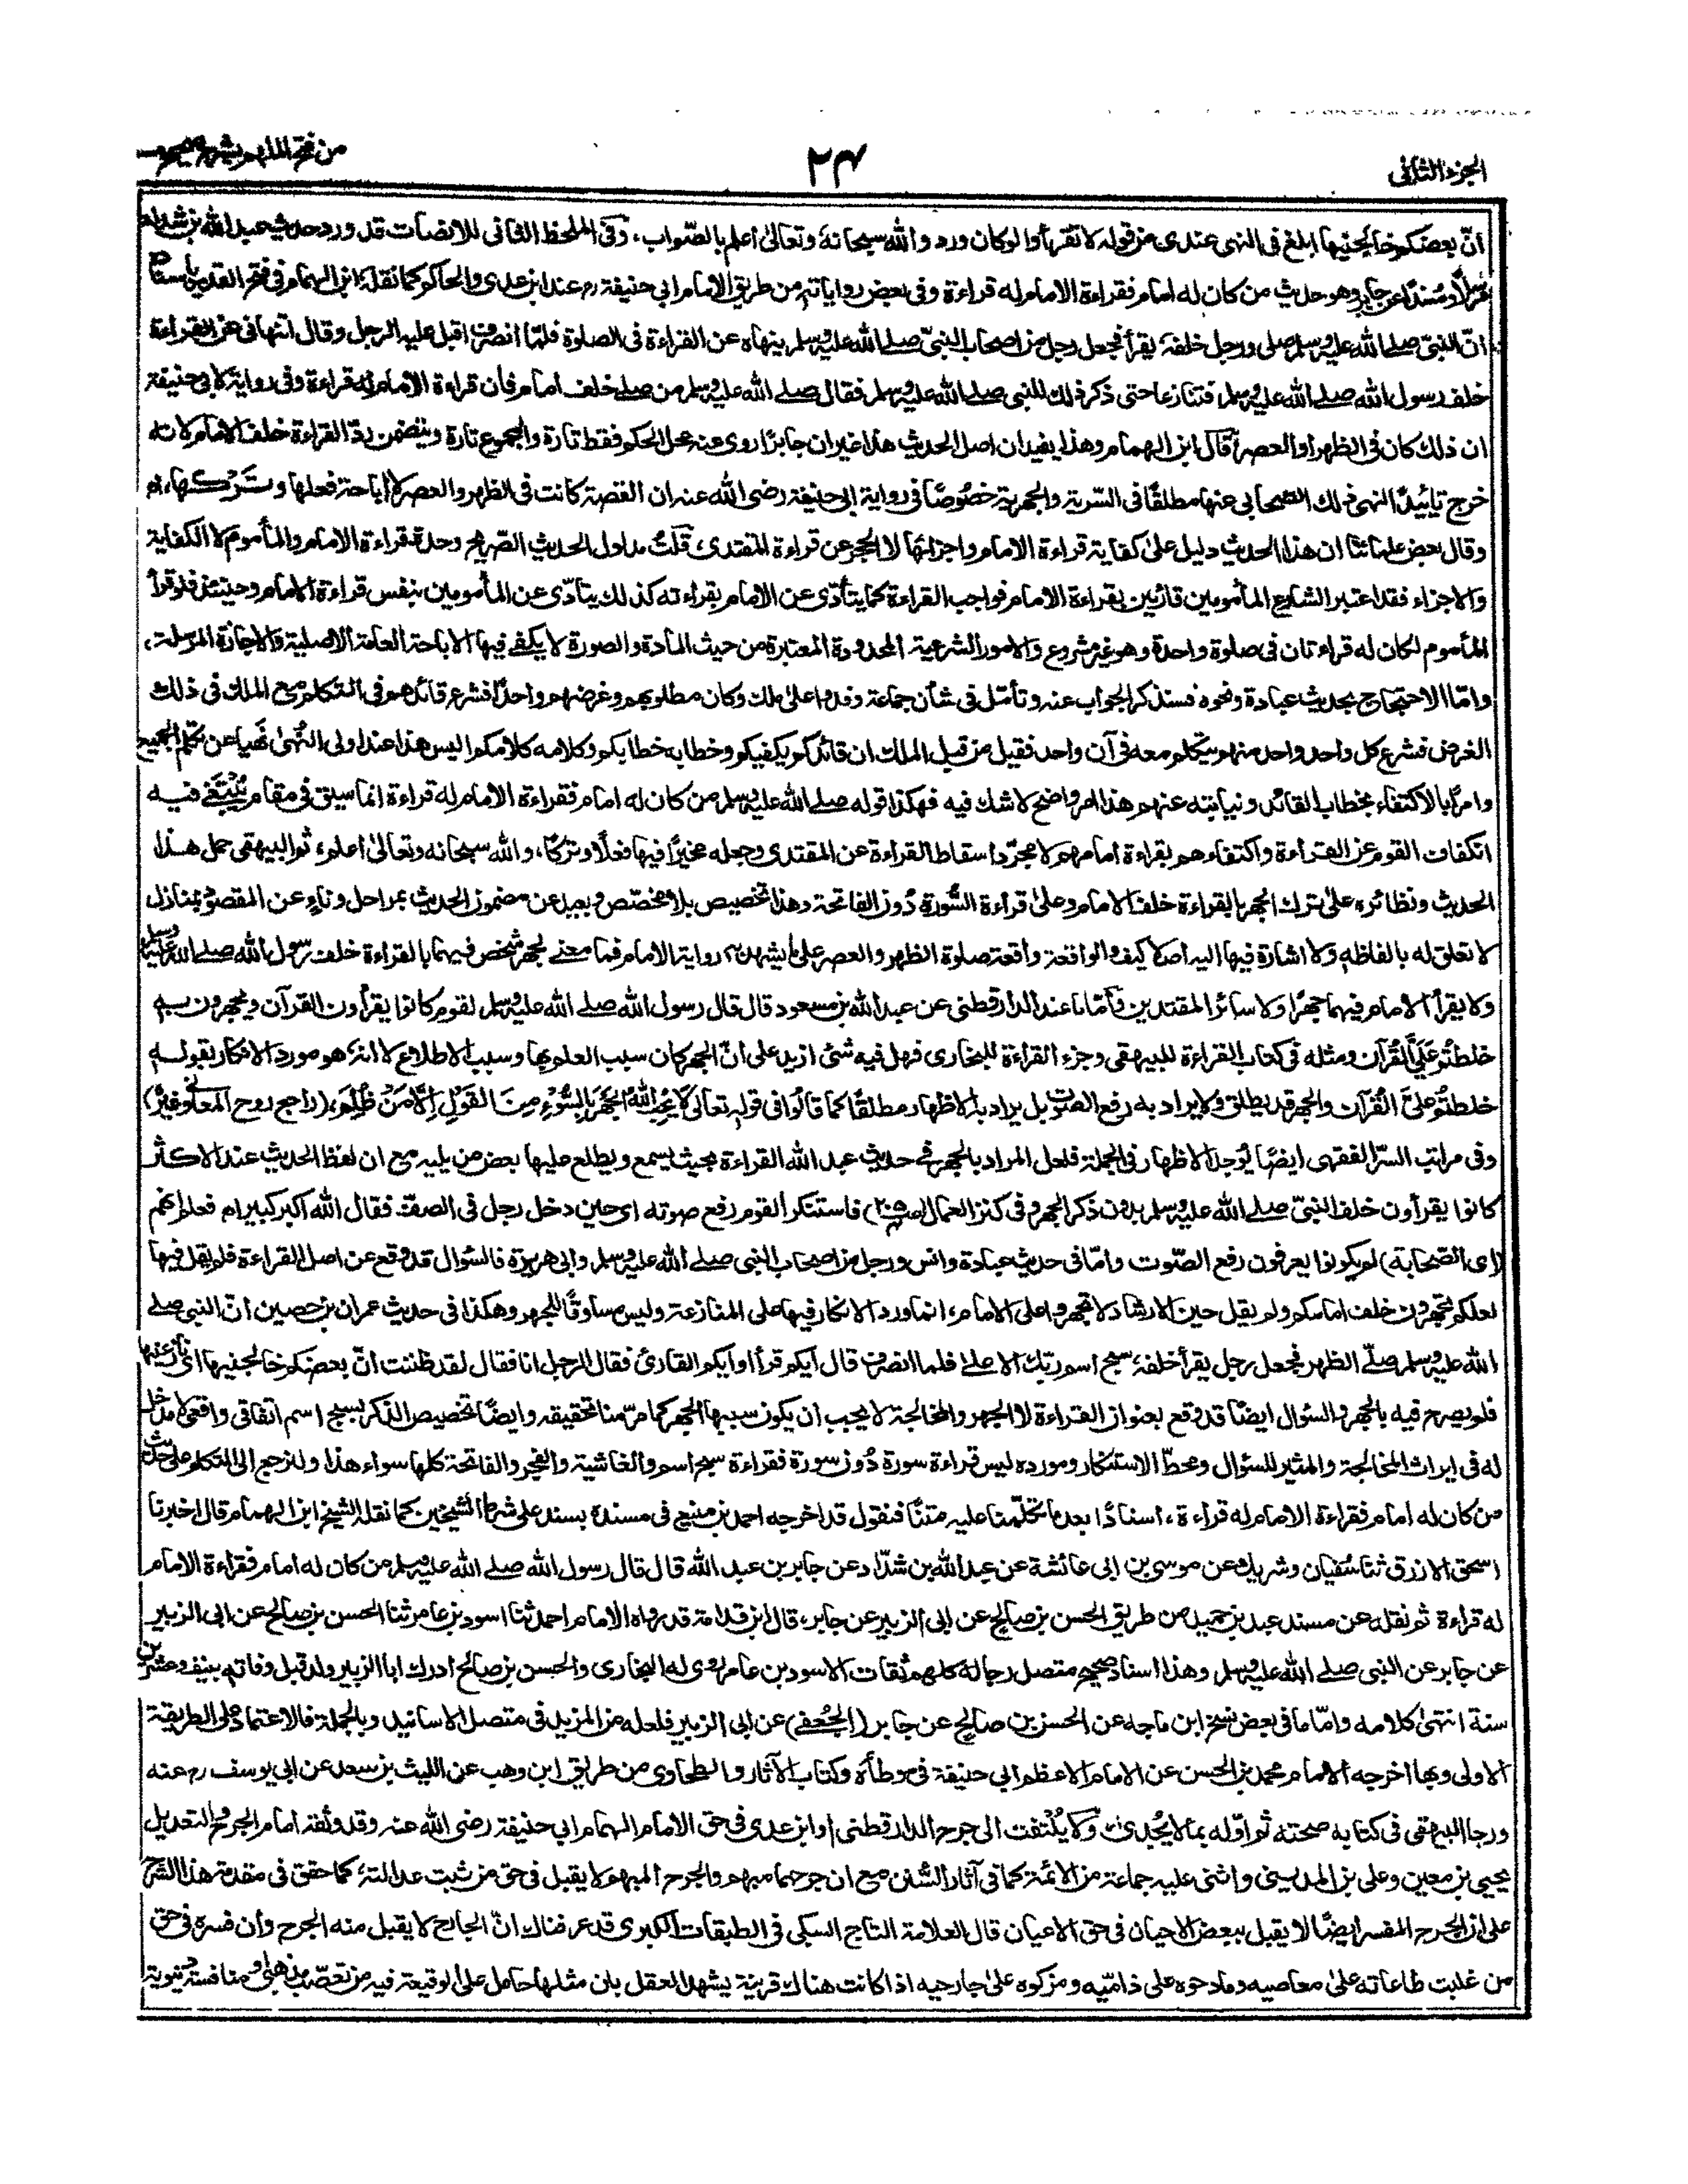 الجزء الثانی
۲۴
من فتح الملهم بشرح صحيح
انّ بعضكم خالجنيها ابلغ فى النهى عندى من قوله لا تقرأوا لو كان ورد والله سبحانه وتعالىٰ اعلم بالصّواب، وفى الملحظ الثانى للانصات قد ورد حديث عبد الله بن شداد
مرسلًا ومسندًا عن جابر وهو حديث من كان له امام فقراءة الامام له قراءة وفى بعض رواياته من طريق الامام ابى حنيفة رح عند ابن عدى والحاكم كما نقله ابن الهمام فى فتح القدير
انّ النبىّ صلے الله عليه وسلم صلى ورجل خلفه يقرأ فجعل رجل من اصحاب النبىّ صلے الله عليه وسلم ينهاه عن القراءة فى الصلوة فلمّا انصرف اقبل عليه الرجل وقال اتنهانى عن القراءة
خلف رسول الله صلے الله عليه وسلم فتنازعا حتى ذكر ذلك للنبى صلے الله عليه وسلم فقال صلے الله عليه وسلم من صلے خلف امام فان قراءة الامام له قراءة وفى رواية لابى حنيفة
ان ذلك كان فى الظهر او العصر قال ابن الهمام وهذا يفيد ان اصل الحديث هذا غير ان جابرًا روى عنه محل الحكم فقط تارة والمجموع تارة ويتضمن ردّ القراءة خلف الامام لانه
خرج تاييدًا لنهى ذلك الصّحابى عنها مطلقًا فى السّرية والجهرية خصوصًا فى رواية ابى حنيفة رضى الله عنه ان القصة كانت فى الظهر والعصر لا اباحة فعلها وتركها، اه
وقال بعض علمائنا ان هذا الحديث دليل علىٰ كفاية قراءة الامام واجزائها لا الحجر عن قراءة المقتدى، قلت مدلول الحديث الصّريح وحدة قراءة الامام والمأموم لا الكفاية
والاجزاء فقد اعتبر الشارع المأمومين قارئين بقراءة الامام فواجب القراءة كما يتأدّى عن الامام بقراءته كذلك يتأدّى عن المأمومين بنفس قراءة الامام وحينئذ فلو قرأ
المأموم لكان له قراءتان فى صلوة واحدة وهو غير مشروع والامور الشرعية المحدودة المعتبرة من حيث المادة والصورة لا يكفى فيها الاباحة العامة الاصلية والاجازة المرسلة،
وامّا الاحتجاج بحديث عبادة ونحوه فسنذكر الجواب عنه وتأمّل فى شأن جماعة وفدوا علىٰ ملك وكان مطلوبهم وغرضهم واحدًا فشرع قائدهم فى التكلم مع الملك فى ذلك
الغرض فشرع كل واحد واحد منهم يتكلم معه فى آن واحد فقيل من قبل الملك ان قائدكم يكفيكم وخطابه خطابكم وكلامه كلامكم اليس هذا عند اولى النُّهىٰ نهيا عن تكلم الجميع
وامرًا بالاكتفاء بخطاب القائد ونيابته عنهم هذا امر واضح لا شك فيه فهكذا قوله صلے الله عليه وسلم من كان له امام فقراءة الامام له قراءة انما سيق فى مقام يُبتغى فيه
انكفاف القوم عن القراءة واكتفاءهم بقراءة امامهم لا مجرّد اسقاط القراءة عن المقتدى وجعله مخيّرًا فيها فعلًا وتركًا، والله سبحانه وتعالىٰ اعلم، ثم البيهقى حمل هذا
الحديث ونظائره علىٰ ترك الجهر بالقراءة خلف الامام وعلىٰ قراءة السُّورة دُون الفاتحة وهذا تخصيص بلا مخصّص وبعيد عن مضمون الحديث بمراحل وناءٍ عن المقصود بمنازل
لا تعلق له بالفاظه ولا اشارة فيها اليه اصلا كيف والواقعة واقعة صلوة الظهر والعصر علىٰ ما يشهد به رواية الامام فما معنے لجهر شخص فيهما بالقراءة خلف رسول الله صلے الله عليه وسلم
ولا يقرأ الامام فيهما جهرًا ولا سائر المقتدين فأمّا ما عند الدارقطنى عن عبد الله بن مسعود قال قال رسول الله صلے الله عليه وسلم لقوم كانوا يقرأون القرآن ويجهرون به
خلطتم عَلَىَّ القُرآن ومثله فى كتاب القراءة للبيهقى وجزء القراءة للبخارى فهل فيه شئ ازيد على انّ الجهر كان سبب العلم بها وسبب الاطلاع لا انه هو مورد الانكار بقوله
خلطتم علىَّ القُرآن والجهر قد يطلق ولا يراد به رفع الصّوت بل يراد به الاظهار مطلقًا كما قالوا فى قوله تعالىٰ لَا يُحِبُّ اللهُ الْجَهْرَ بِالسُّوْءِ مِنَ القَوْلِ اِلَّا مَنْ ظُلِمَ، (راجع روح المعانى وغيره)
وفى مراتب السرّ الفقهى ايضًا يُوجد الاظهار فى الجملة فلعل المراد بالجهر فى حديث عبد الله القراءة بحيث يسمع ويطلع عليها بعض من يليه مع ان لفظ الحديث عند الاكثر
كانوا يقرأون خلف النبىّ صلے الله عليه وسلم بدون ذكر الجهر وفى كنز العمال فاستنكر القوم رفع صوته اى حين دخل رجل فى الصفّ فقال الله اكبر كبيرا، اه فعلم انهم
(اى الصّحابة) لم يكونوا يعرفون رفع الصّوت وامّا فى حديث عبادة وانس ورجل من اصحاب النبى صلے الله عليه وسلم وابى هريرة فالسّؤال قد وقع عن اصل القراءة فلم يقل فيها
لعلكم تجهرون خلف امامكم ولم يقل حين الارشاد لا تجهروا على الامام، انما ورد الانكار فيها على المنازعة وليس مساوقًا للجهر وهكذا فى حديث عمران بن حصين انّ النبى صلے
الله عليه وسلم صلّى الظهر فجعل رجل يقرأ خلفه سبح اسم ربك الاعلىٰ فلما انصرف قال ايكم قرأ او ايكم القارئ فقال الرجل انا فقال لقد ظننت انّ بعضكم خالجنيها اى نازعنيها
فلم يصرح فيه بالجهر والسّؤال ايضًا قد وقع بعنوان القراءة لا الجهر والمخالجة لا يجب ان يكون سببها الجهر كما مرّ منا تحقيقه وايضًا تخصيص الذكر بسبح اسم اتفاقى واقعى لا مدخل
له فى ايراث المخالجة والمثير للسّؤال ومحطّ الاستنكار ومورده ليس قراءة سورة دُون سورة فقراءة سبح اسم والغاشية والفجر والفاتحة كلها سواء هذا ولنرجع الى التكلم على حديث
من كان له امام فقراءة الامام له قراءة، اسنادًا بعد ما تكلّمنا عليه متنًا فنقول قد اخرجه احمد بن منيع فى مسنده بسند على شرط الشيخين كما نقله الشيخ ابن الهمام قال اخبرنا
اسحق الازرق ثنا سُفيان وشريك عن موسى بن ابى عائشة عن عبد الله بن شدّاد عن جابر بن عبد الله قال قال رسول الله صلے الله عليه وسلم من كان له امام فقراءة الامام
له قراءة ثم نقله عن مسند عبد بن حميد من طريق الحسن بن صالح عن ابى الزبير عن جابر، قال ابن قدامة قد رواه الامام احمد ثنا اسود بن عامر ثنا الحسن بن صالح عن ابى الزبير
عن جابر عن النبى صلے الله عليه وسلم وهذا اسناد صحيح متصل رجاله كلهم ثقات الاسود بن عامر روى له البخارى والحسن بن صالح ادرك ابا الزبير ولد قبل وفاته بنيف وعشرين
سنة انتهىٰ كلامه وامّا ما فى بعض نسخ ابن ماجه عن الحسن بن صالح عن جابر (الجُعفى) عن ابى الزبير فلعله من المزيد فى متصل الاسانيد وبالجملة فالاعتماد على الطريقة
الاولى وبها اخرجه الامام محمد بن الحسن عن الامام الاعظم ابى حنيفة فى موطأه وكتاب الآثار والطحاوى من طريق ابن وهب عن الليث بن سعد عن ابى يوسف رح عنه
ورجا البيهقى فى كتابه صحته ثم اوّله بما لا يُجدى، ولا يُلتفت الى جرح الدارقطنى او ابن عدى فى حق الامام الهمام ابى حنيفة رضى الله عنه وقد وثقه امام الجرح والتعديل
يحيى بن معين وعلى بن المدينى واثنى عليه جماعة من الائمة كما فى آثار السُّنن مع ان جرحهما مبهم والجرح المبهم لا يقبل فى حق من ثبت عدالته كما حقق فى مقدمة هذا الشرح
على ان الجرح المفسر ايضًا لا يقبل ببعض الاحيان فى حق الاعيان قال العلامة التاج السبكى فى الطبقات الكبرى قد عرفناك انّ الجارح لا يقبل منه الجرح وأن فسره فى حق
من غلبت طاعاته علىٰ معاصيه ومادحوه على ذامّيه ومزكوه علىٰ جارحيه اذا كانت هناك قرينة يشهد العقل بان مثلها حامل على الوقيعة فيه من تعصّب مذهبى او منافسة دنيوية